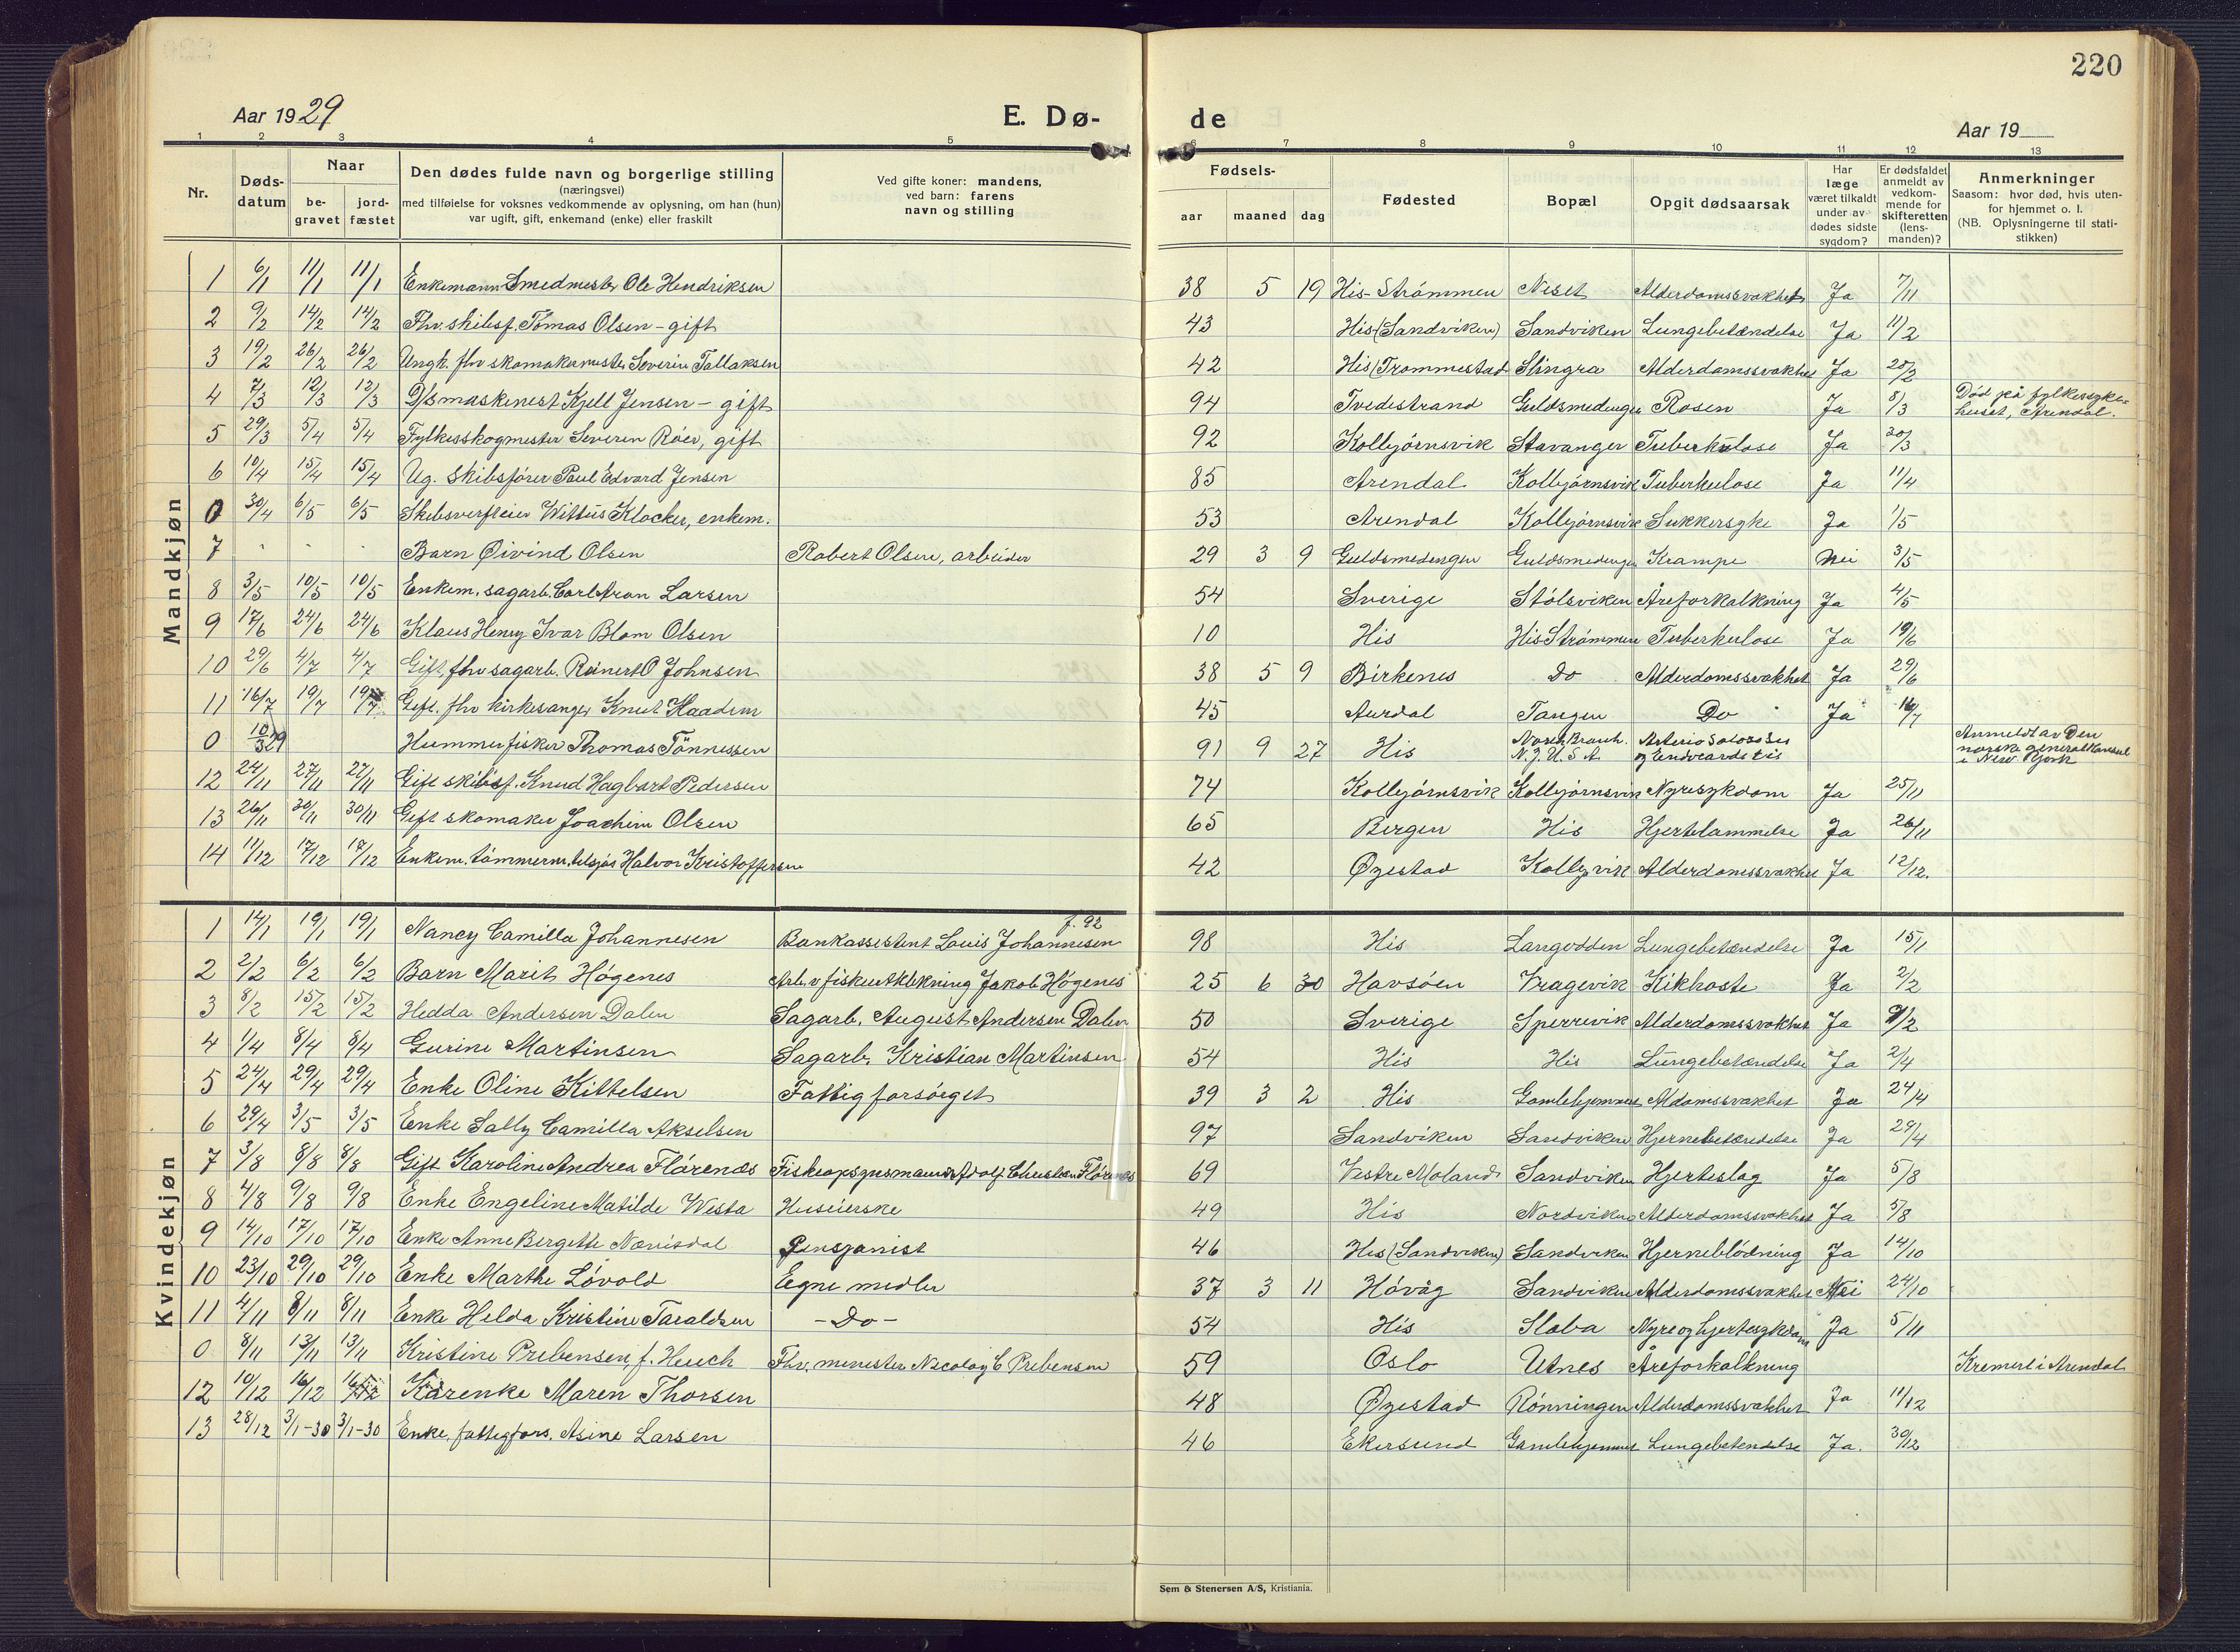 220
Aar 1929
E. Dø-
de
Aar 19
1 2 3 4 5 6 7 8 9 10 11 12 13
Nr.
Døds-
datum
Naar
be-
gravet
jord-
fæstet
Den dødes fulde navn og borgerlige stilling
(næringsvei)
med tilføielse for voksnes vedkommende av oplysning, om han (hun)
var ugift, gift, enkemand (enke) eller fraskilt
Ved gifte koner: mandens,
ved barn: farens
navn og stilling
Fødsels-
aar maaned dag
Fødested
Bopæl
Opgit dødsaarsak
Har
læge
været tilkaldt
under av-
dødes sidste
sygdom?
Er dødsfaldet
anmeldt av
vedkom-
mende for
skifteretten
(lens-
manden)?
Anmerkninger
Saasom: hvor død, hvis uten-
for hjemmet o. l.
(NB. Oplysningerne til stati-
stikken)
Mandkjøn
1 6/1 11/1 11/1 Enkemann Smedmester Ole Hendriksen 38 5 19 His-Strømmen Neset Alderdomssvakhet Ja 7/11
2 9/2 14/2 14/2 Fhv. skibsf. Tomas Olsen - gift 43 His (Sandviken) Sandviken Lungebetændelse Ja 11/2
3 19/2 26/2 26/2 Ungk. fhv skomakermester Severin Tallaksen 42 His (Trommestad Slingra Alderdomssvakhet Ja 20/2
4 7/3 12/3 12/3 D/S maskinest Kjell Jensen - gift 94 Tvedestrand Guldsmedengen Rosen Ja 8/3 Død på fylkessyke-
huset, Arendal.
5 29/3 5/4 5/4 Fylkesskogmester Severin Röer, gift 92 Kolbjörnsvik Stavanger Tuberkulose Ja 30/3
6 10/4 15/4 15/4 Ug. Skibsfører Paul Edvard Jensen 85 Arendal Kolbjörnsvik Tuberkulose Ja 11/4
0 30/4 6/5 6/5 Skibsverfteier Wittus Klocker, enkem. 53 Arendal Kolbjörnsvik Sukkersyke Ja 1/5
7 - - - Barn Øivind Olsen Robert Olsen, arbeider 29 3 9 Guldsmedengen Guldsmedengen Krampe Nei 3/5
8 3/5 10/5 10/5 Enkem. sagarb. Carl Aron Larsen 54 Sverige Stölsviken Åreforkalkning Ja 4/5
9 17/6 24/6 24/6 Klaus Henry Ivar Blom Olsen 10 His His Strömmen Tuberkulose Ja 19/6
10 29/6 4/7 4/7 Gift, fhv sagarb. Reinert O Johnsen 38 5 9 Birkenes Do Alderdomssvakhet Ja 29/6
11 16/7 19/7 19/7 Gift. fhv kirkesanger Knut Haadem 45 Aurdal Tangen Do Ja 16/7
0 10/3 29 Hummerfisker Thomas Tönnessen 91 9 27 His North Branch.
N.J. U.S.A. Arterio
og Endocarditis Anmeldt av Den
norske generalkonsul
i New York
12 24/11 27/11 27/11 Gift skibsf. Knud Hagbart Pedersen 74 Kolbjörnsvik Kolbjörnsvik Nyresykdom Ja 25/11
13 26/11 30/11 30/11 Gift skomaker Joachim Olsen 65 Bergen His Hjertelammelse Ja 26/11
14 11/12 17/12 17/12 Enkem. tömmerm. tilsjös Halvor Kristoffersen 42 Øyestad Kolbj.vik Alderdomssvakhet Ja 12/12.
Kvindekjøn
f. 92
1 14/1 19/1 19/1 Nancy Camilla Johannesen Bankassistent Louis Johannesen 98 His Langodden Lungebetændelse Ja 15/1
2 2/2 6/2 6/2 Barn Marit Högenes Arb. v fiskeutklekning Jakob Högenes 25 6 30 Havsöen Vragevik Kikhoste Ja 2/2
3 8/2 15/2 15/2 Hedda Andersen Dalen Sagarb. August Andersen Dalen 50 Sverige Sperrevik Alderdomssvakhet Ja 9/2
4 1/4 8/4 8/4 Gurine Martinsen Sagarb. Kristian Martinsen 54 His His Lungebetændelse Ja 2/4
5 24/4 29/4 29/4 Enke Oline Kittelsen Fattigforsörget 39 3 2 His Gamlehjemmet Aldomssvakhet Ja 24/4
6 29/4 3/5 3/5 Enke Sally Camilla Akselsen 97 Sandviken Sandviken Hjernebetændelse Ja 29/4
7 3/8 8/8 8/8 Gift Karoline Andrea Flörenæs Fiskeopsynsmann Adolf Christian Flörenæs 69 Vestre Moland Sandviken Hjerteslag Ja 5/8
8 4/8 9/8 9/8 Enke Engeline Matilde Westa Huseierske 49 His Nordviken Alderdomssvakhet Ja 5/8
9 14/10 17/10 17/10 Enke Anne Bergette Nævisdal Pensjonist 46 His (Sandviken) Sandviken Hjerneblödning Ja 14/10
10 23/10 29/10 29/10 Enke Marthe Lövold Egne midler 37 3 11 Hövåg Sandviken Alderdomssvakhet Nei 24/10
11 4/11 8/11 8/11 Enke Helda Kristine Taraldsen - Do - 54 His Slaba Nyre og hjertesykdom Ja 5/11
0 8/11 13/11 13/11 Kristine Prebensen, f. Heuch Fhv. minister Nicolay C Prebensen 59 Oslo Utnes Åreforkalkning Kremert i Arendal
12 10/12 16/12 16/12 Karenke Maren Thorsen 48 Øyestad Rönningen Alderdomssvakhet Ja 11/12
13 28/12 3/1-30 3/1-30 Enke, fattigfors. Asine Larsen 46 Ekersund Gamlehjemmet Lungebetendelse Ja. 30/12
Sem & Stenersen A/S, Kristiania.